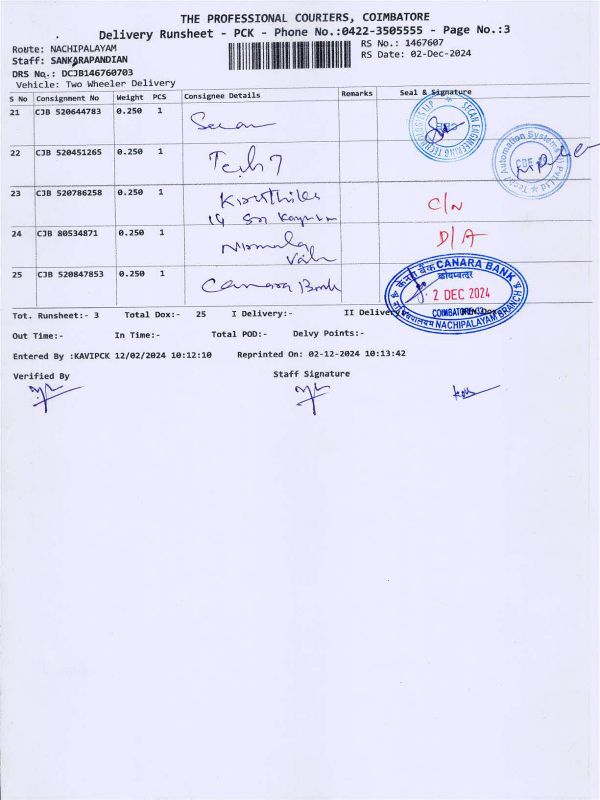 THE PROFESSIONAL COURIERS, COIMBATORE
Delivery Runsheet - PCK - Phone No.:0422-3505555 - Page No.:3
Route: NACHIPALAYAM RS No.: 1467607
Staff: SANKARAPANDIAN RS Date: 02-Dec-2024
DRS No.: DCJB146760703
Vehicle: Two Wheeler Delivery
S No Consignment No Weight PCS Consignee Details Remarks Seal & Signature
21 CJB 520644783 0.250 1 Secan
SECAN ENGINEERING
22 CJB 520451265 0.250 1 Tech 7
Automation Systems
CBE
23 CJB 520786258 0.250 1 C/N
24 CJB 80534871 0.250 1 Nirmala D/A
25 CJB 520847853 0.250 1 Canara Bank
केनरा बैंक CANARA BANK
कोयम्बत्तूर
2 DEC 2024
COIMBATORE
NACHIPALAYAM BRANCH
Tot. Runsheet:- 3 Total Dox:- 25 I Delivery:- II Delivery
Out Time:- In Time:- Total POD:- Delvy Points:-
Entered By :KAVIPCK 12/02/2024 10:12:10 Reprinted On: 02-12-2024 10:13:42
Verified By Staff Signature